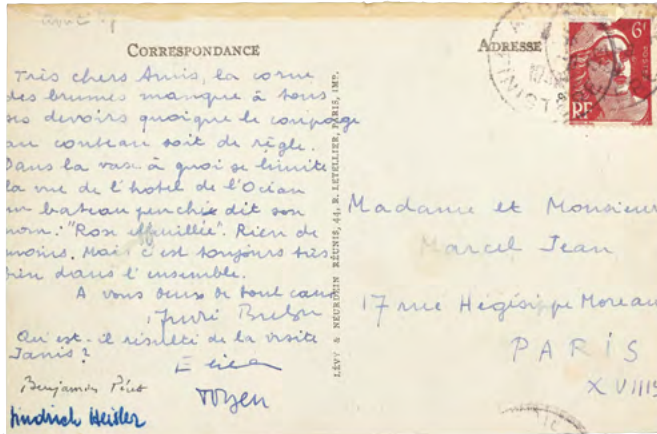 avril 49
CORRESPONDANCE
ADRESSE
6F
POSTES
RF
FINISTERE
Très chers Amis, la corne
des brumes manque à tous
ses devoirs quoique le coupage
au couteau soit de règle.
Dans la vase à quoi se limite
la vue de l'hôtel de l'Océan
un bateau penché dit son
nom : "Rose effeuillée". Rien de
Mais c'est toujours très
bien dans l'ensemble.
A vous deux de tout cœur
André Breton
Qu'est-il résulté de la visite
Janis ?
Elisa
Benjamin Péret
Toyen
Jindrich Heisler
LÉVY & NEURDEIN RÉUNIS, 44, R. LETELLIER, PARIS, IMP.
Madame et Monsieur
Marcel Jean
17 rue Hégésippe Moreau
PARIS
XVIIIe